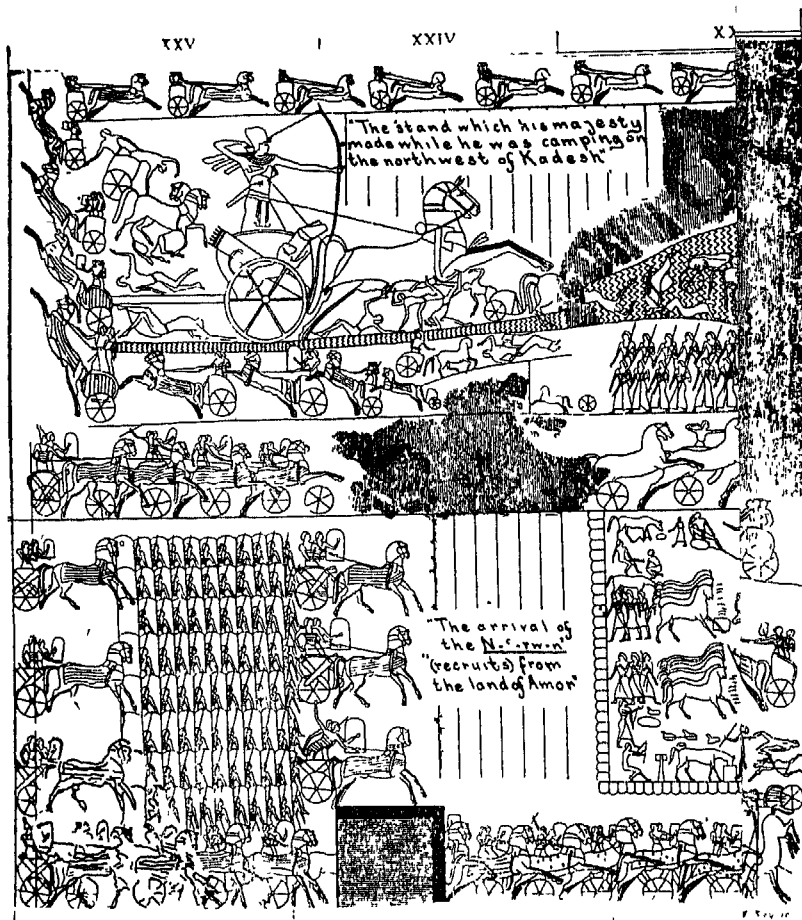 XXV
XXIV
XX
"The stand which his majesty
made while he was camping on
the northwest of Kadesh"
"The arrival of
the N-c-rw-n"
"(recruits) from
the land of Amor"